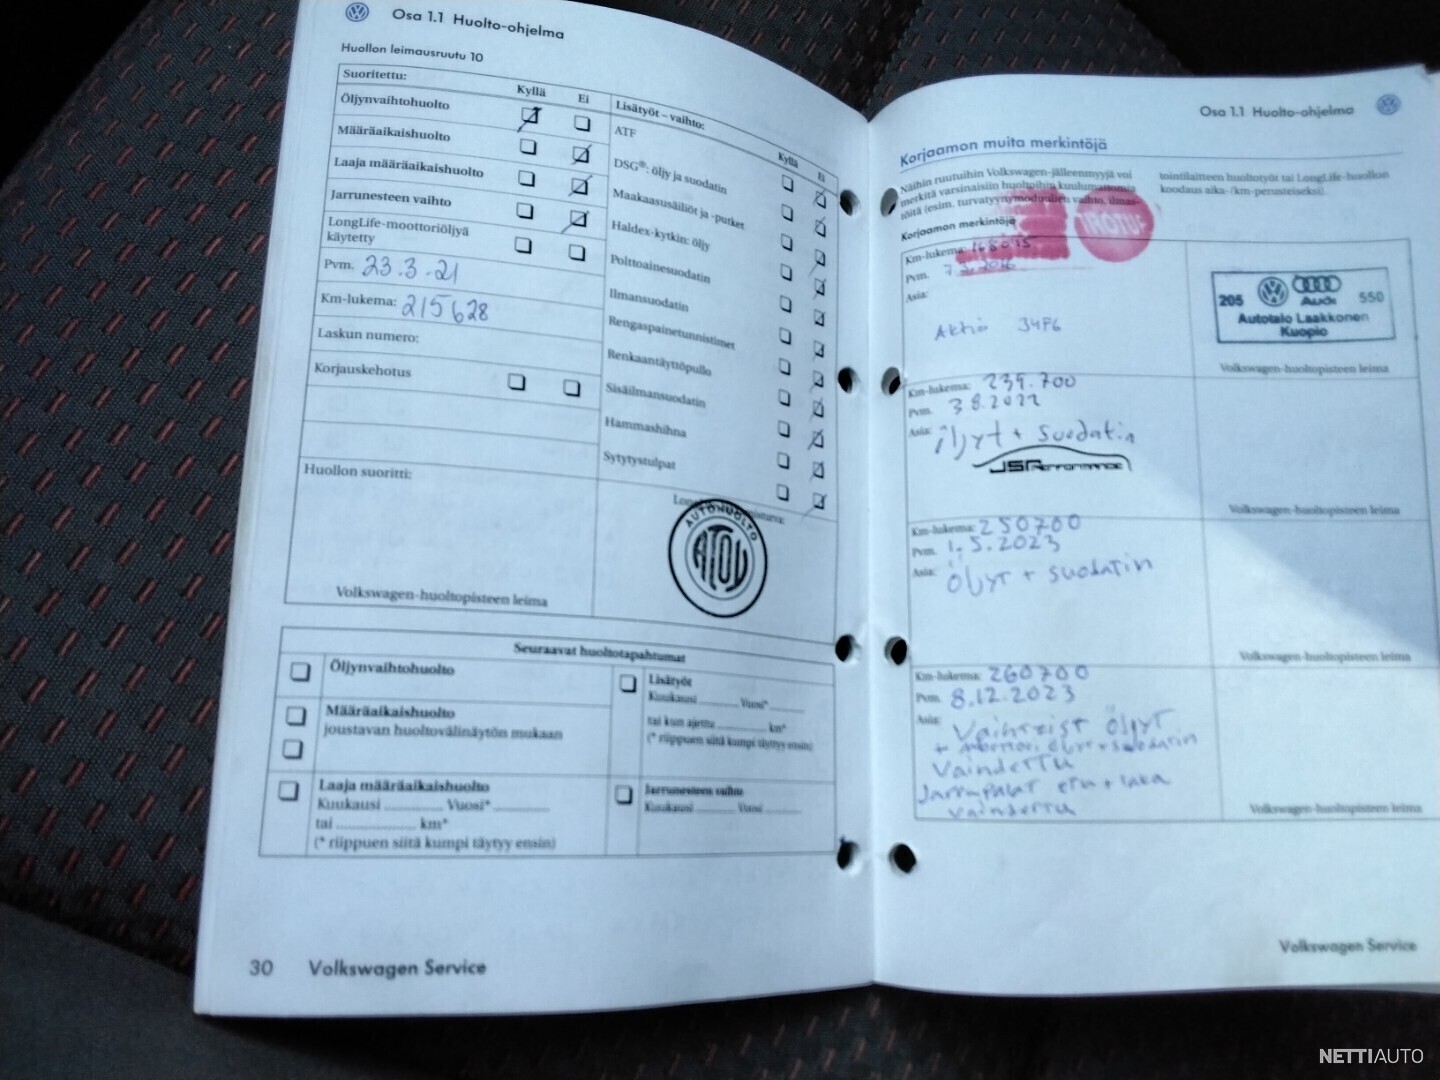 Osa 1.1 Huolto-ohjelma
Huollon leimausruutu 10
Suoritettu:
Kyllä Ei
Öljynvaihtohuolto
Määräaikaishuolto
Laaja määräaikaishuolto
Jarrunesteen vaihto
LongLife-moottoriöljyä
käytetty
Pvm. 23.3.21
Km-lukema: 215628
Laskun numero:
Korjauskehotus
Huollon suoritti:
Volkswagen-huoltopisteen leima
Lisätyöt – vaihto:
Kyllä Ei
ATF
DSG®: öljy ja suodatin
Maakaasusäiliöt ja -putket
Haldex-kytkin: öljy
Polttoainesuodatin
Ilmansuodatin
Rengaspainetunnistimet
Renkaantäyttöpullo
Sisäilmansuodatin
Hammashihna
Sytytystulpat
AUTOHUOLTO
ATOY
Seuraavat huoltotapahtumat
Öljynvaihtohuolto
Määräaikaishuolto
joustavan huoltovälinäytön mukaan
Laaja määräaikaishuolto
Kuukausi ............ Vuosi* ............
tai ................ km*
(* riippuen siitä kumpi täytyy ensin)
Lisätyöt
Kuukausi ............ Vuosi* ............
tai kun ajettu ................ km*
(* riippuen siitä kumpi täytyy ensin)
Jarrunesteen vaihto
Kuukausi ............ Vuosi ............
30 Volkswagen Service
Osa 1.1 Huolto-ohjelma
Korjaamon muita merkintöjä
Näihin ruutuihin Volkswagen-jälleenmyyjä voi
merkitä varsinaisiin huoltoihin kuulumattomia
töitä (esim. turvatyynymoduulien vaihto, ilmas-
tointilaitteen huoltotyöt tai LongLife-huollon
koodaus aika-/km-perusteiseksi).
Korjaamon merkintöjä
Km-lukema: 168095
Pvm.
Asia:
Aktio 34F6
205 550
Audi
Autotalo Laakkonen
Kuopio
Volkswagen-huoltopisteen leima
Km-lukema: 239.700
Pvm. 3.8.2022
Asia: Öljyt + suodatin
JSPerformance
Volkswagen-huoltopisteen leima
Km-lukema: 250700
Pvm. 1.5.2023
Asia: Öljyt + suodatin
Volkswagen-huoltopisteen leima
Km-lukema: 260700
Pvm. 8.12.2023
Asia: Vaihteist öljyt
+ moottori öljyt + suodatin
vaihdettu
Jarrupalat etu + taka
vaihdettu
Volkswagen-huoltopisteen leima
Volkswagen Service
NETTIAUTO